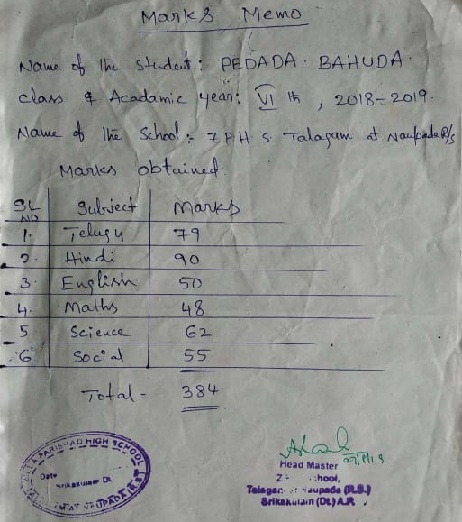 Marks Memo
Name of the student: PEDADA. BAHUDA.
class & Acadamic year: VI th, 2018-2019.
Name of the School: Z.P.H.S. Talagam at Naupada R/s
Marks obtained.
SL NO Subject Marks
1. Telugu 79
2. Hindi 90
3. English 50
4. Maths 48
5 Science 62
6 Social 55
Total - 384
PARISHAD HIGH SCHOOL
Date
Srikakulam Dt.
Head Master
School,
Naupada (R.S.)
Srikakulam (Dt.) A.P.